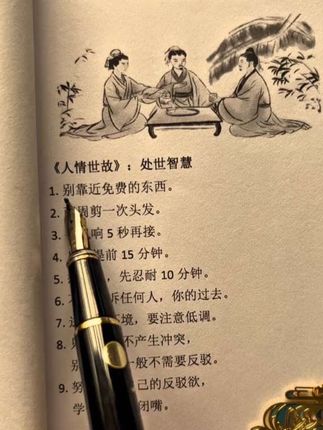 《人情世故》：处世智慧
1. 别靠近免费的东西。
2. 周剪一次头发。
3. 响 5 秒再接。
4. 提前 15 分钟。
5. ，先忍耐 10 分钟。
6. 诉任何人，你的过去。
7. 环境，要注意低调。
8. 不产生冲突，
别 一般不需要反驳。
9. 努 己的反驳欲，
学 闭嘴。